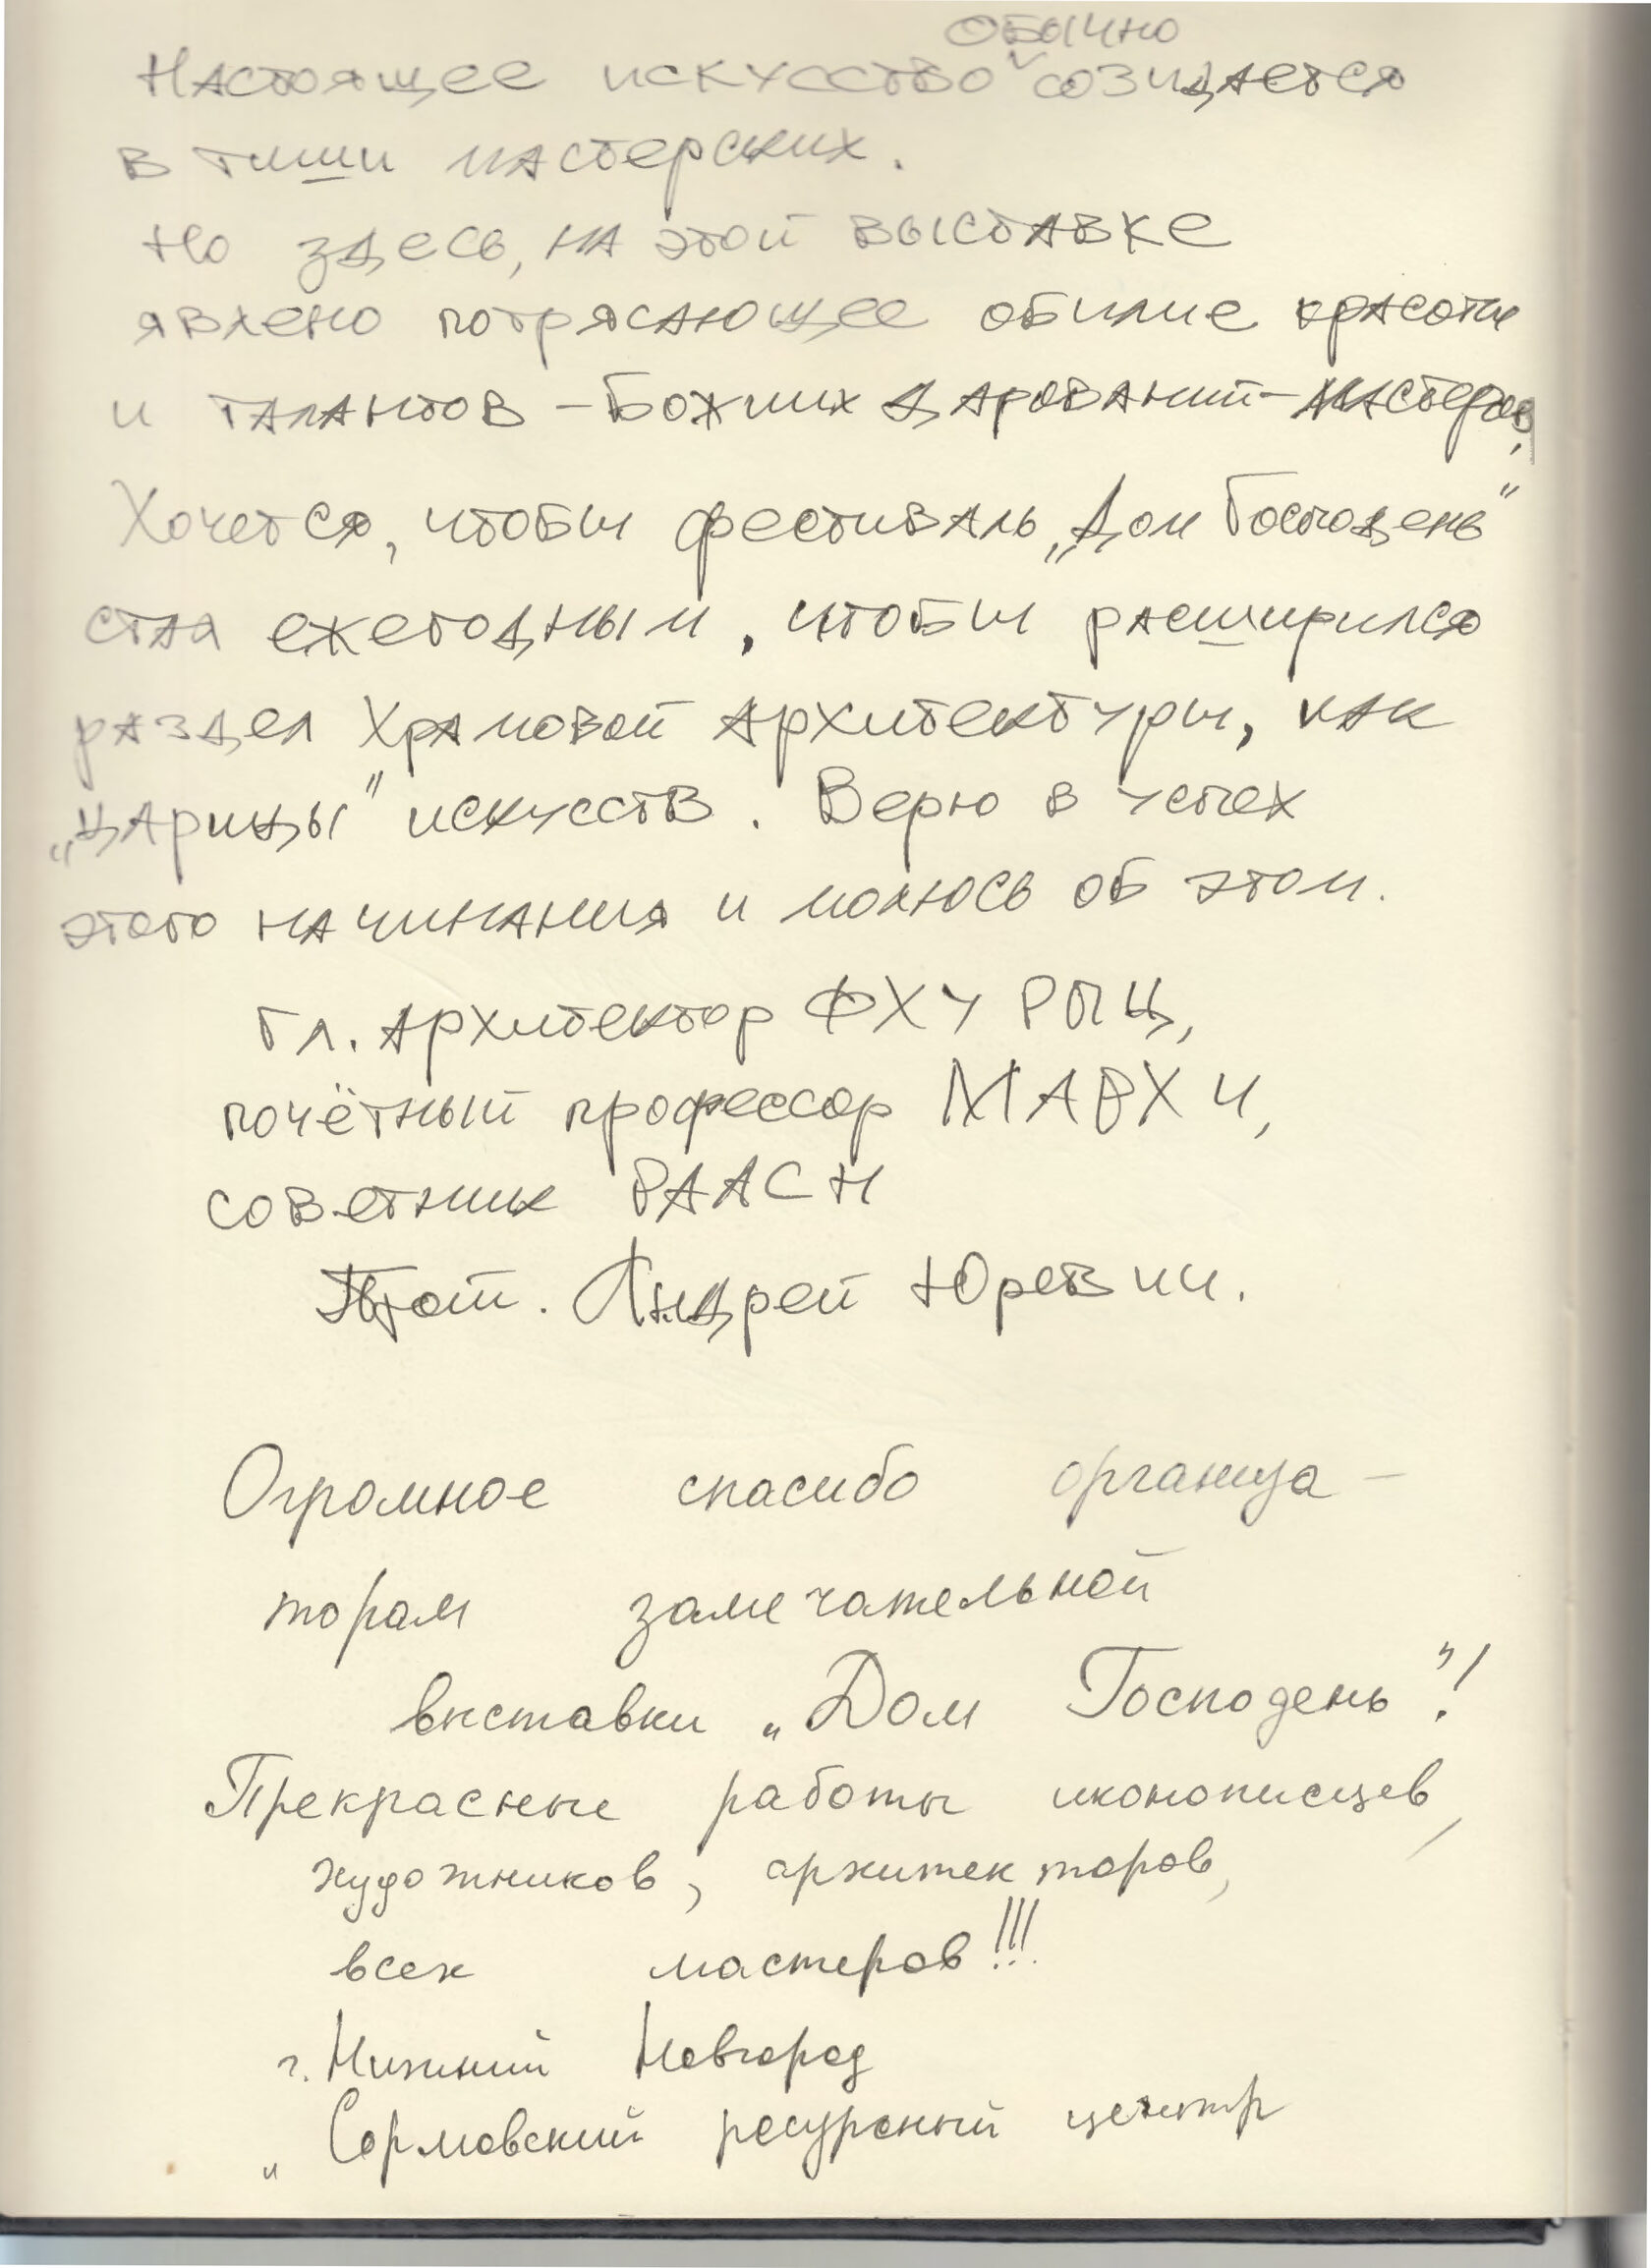 обычно
Настоящее искусство созидается
в тиши мастерских.
Но здесь, на этой выставке
явлено потрясающее обилие красоты
и талантов – Божиих дарований – мастеров.
Хочется, чтобы фестиваль „Дом Господень“
стал ежегодным, чтобы расширился
раздел Храмовой Архитектуры, как
„царицы“ искусств. Верю в успех
этого начинания и молюсь об этом.
Гл. Архитектор ФХУ РПЦ,
почётный профессор МАРХИ,
советник РААСН
Прот. Андрей Юревич.
Огромное спасибо организа–
торам замечательной
выставки „Дом Господень“!
Прекрасные работы иконописцев,
художников, архитекторов,
всех мастеров!!!
г. Нижний Новгород
„Сормовский ресурсный центр